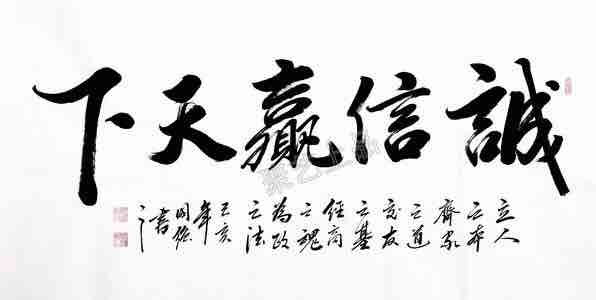 誠信贏天下
立人
之本
齊家
之道
交友
之基
經商
之魂
為政
之法
己亥
年
國
書